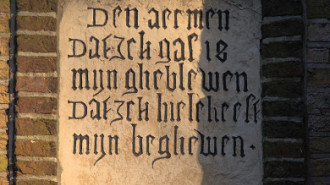 Den aermen
Datzck gaf is
myn ghebleven
Datzck hielt heeft
myn beghewen.